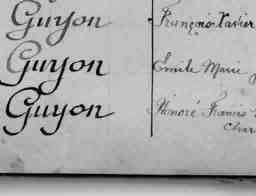 Guyon François Xavier
Guyon Emile Marie
Guyon Honoré Francis
Char